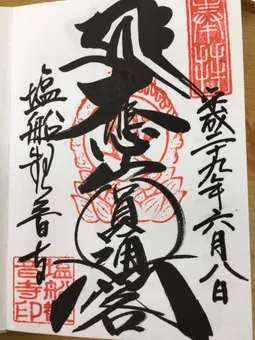 奉拝
平成二十九年六月八日
大悲山圓通閣
塩船観音寺
塩船観音寺印